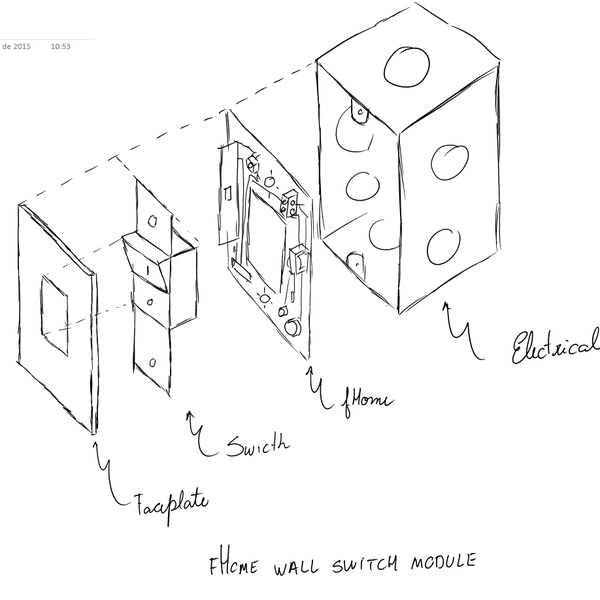 de 2015 10:53
Electrical
fHome
Swicth
Faceplate
fHome WALL SWITCH MODULE